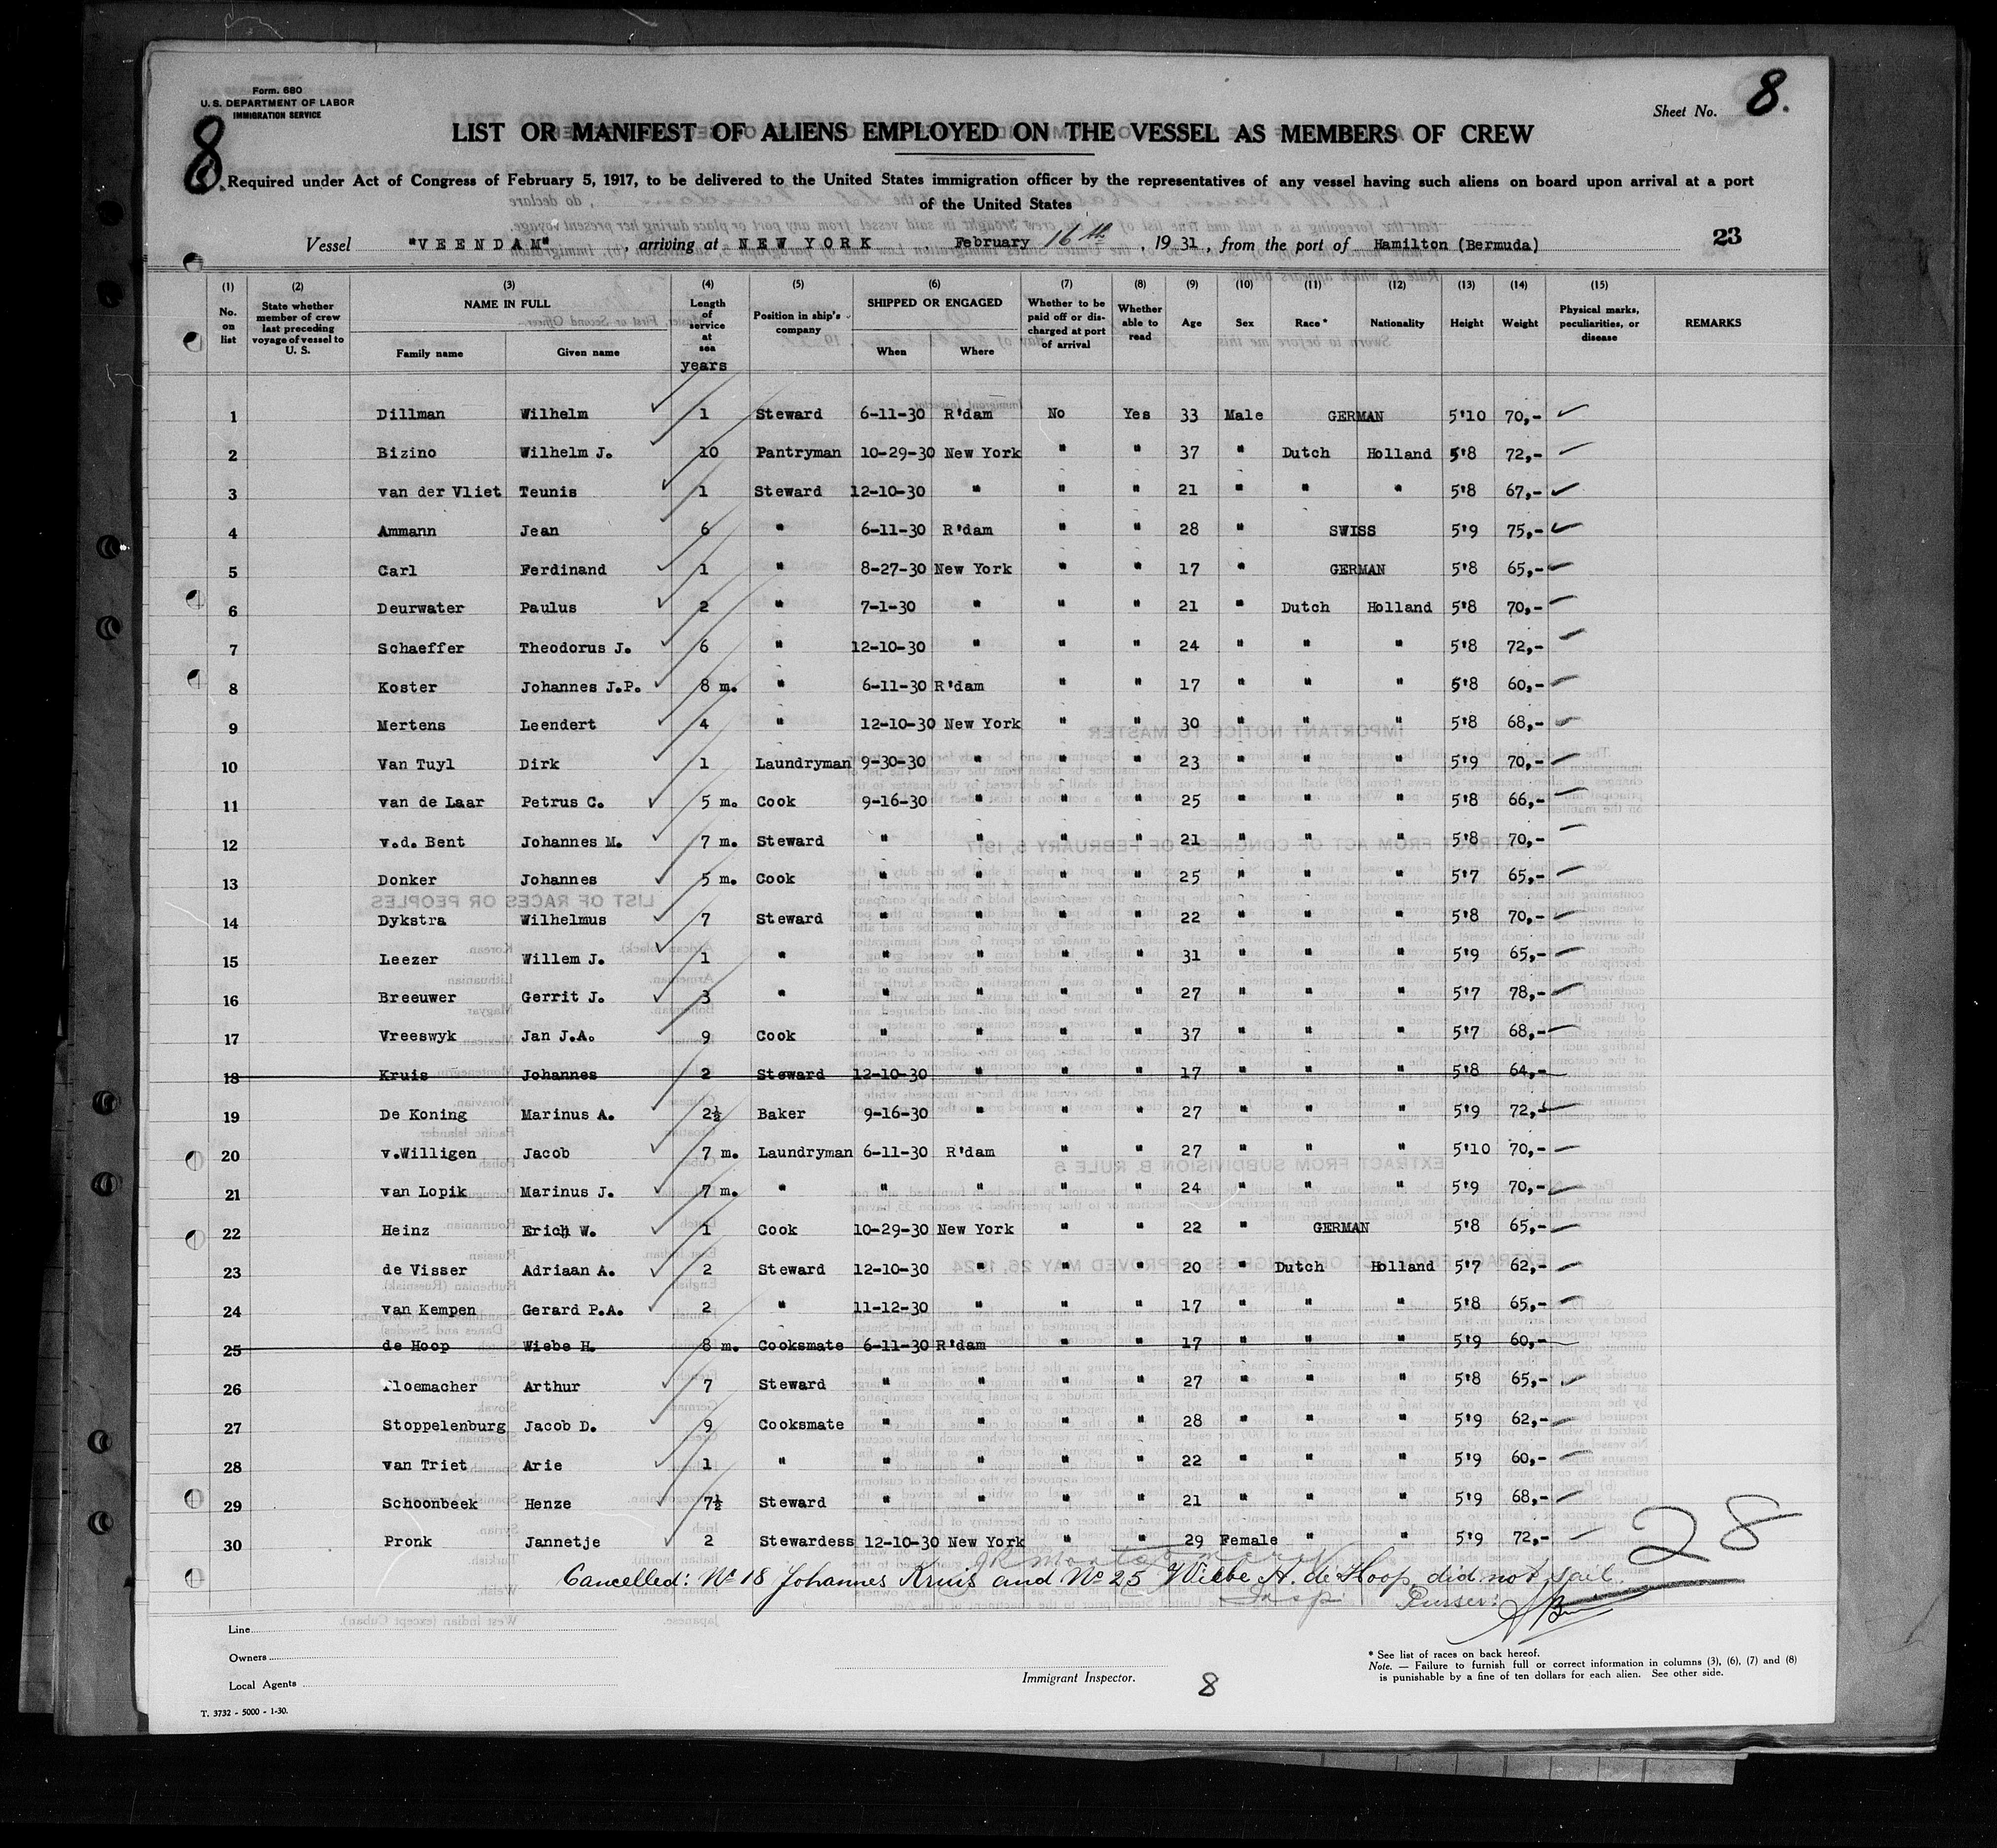 Form. 680
U. S. DEPARTMENT OF LABOR
IMMIGRATION SERVICE
8
Sheet No. 8.
LIST OR MANIFEST OF ALIENS EMPLOYED ON THE VESSEL AS MEMBERS OF CREW
Required under Act of Congress of February 5, 1917, to be delivered to the United States immigration officer by the representatives of any vessel having such aliens on board upon arrival at a port
of the United States
Vessel "VEENDAM", arriving at NEW YORK, February 16th, 1931, from the port of Hamilton (Bermuda) 23
(1) No. on list (2) State whether member of crew last preceding voyage of vessel to U. S. (3) NAME IN FULL Family name Given name (4) Length of service at sea years (5) Position in ship's company (6) SHIPPED OR ENGAGED When Where (7) Whether to be paid off or discharged at port of arrival (8) Whether able to read (9) Age (10) Sex (11) Race* (12) Nationality (13) Height (14) Weight (15) Physical marks, peculiarities, or disease REMARKS
1 Dillman Wilhelm 1 Steward 6-11-30 R'dam No Yes 33 Male GERMAN 5'10 70,-
2 Bizino Wilhelm J. 10 Pantryman 10-29-30 New York " " 37 " Dutch Holland 5'8 72,-
3 van der Vliet Teunis 1 Steward 12-10-30 " " " 21 " " " 5'8 67,-
4 Ammann Jean 6 " 6-11-30 R'dam " " 28 " SWISS 5'9 75,-
5 Carl Ferdinand 1 " 8-27-30 New York " " 17 " GERMAN 5'8 65,-
6 Deurwater Paulus 2 " 7-1-30 " " " 21 " Dutch Holland 5'8 70,-
7 Schaeffer Theodorus J. 6 " 12-10-30 " " " 24 " " " 5'8 72,-
8 Koster Johannes J.P. 8 m. " 6-11-30 R'dam " " 17 " " " 5'8 60,-
9 Mertens Leendert 4 " 12-10-30 New York " " 30 " " " 5'8 68,-
10 Van Tuyl Dirk 1 Laundryman 9-30-30 " " " 23 " " " 5'9 70,-
11 van de Laar Petrus C. 5 m. Cook 9-16-30 " " " 25 " " " 5'8 66,-
12 v.d. Bent Johannes M. 7 m. Steward " " " " 21 " " " 5'8 70,-
13 Donker Johannes 5 m. Cook " " " " 25 " " " 5'7 65,-
14 Dykstra Wilhelmus 7 Steward " " " " 22 " " " 5'8 70,-
15 Leezer Willem J. 1 " " " " " 31 " " " 5'9 65,-
16 Breeuwer Gerrit J. 3 " " " " " 27 " " " 5'7 78,-
17 Vreeswyk Jan J.A. 9 Cook " " " " 37 " " " 5'7 68,-
18 Kruis Johannes 2 Steward 12-10-30 " " " 17 " " " 5'8 64,-
19 De Koning Marinus A. 2½ Baker 9-16-30 " " " 27 " " " 5'9 72,-
20 v.Willigen Jacob 7 m. Laundryman 6-11-30 R'dam " " 27 " " " 5'10 70,-
21 van Lopik Marinus J. 7 m. " " " " " 24 " " " 5'9 70,-
22 Heinz Erich W. 1 Cook 10-29-30 New York " " 22 " GERMAN 5'8 65,-
23 de Visser Adriaan A. 2 Steward 12-10-30 " " " 20 " Dutch Holland 5'7 62,-
24 van Kempen Gerard P.A. 2 " 11-12-30 " " " 17 " " " 5'8 65,-
25 de Hoop Wiebe H. 8 m. Cooksmate 6-11-30 R'dam " " 17 " " " 5'9 60,-
26 loemacher Arthur 7 Steward " " " " 27 " " " 5'8 65,-
27 Stoppelenburg Jacob D. 9 Cooksmate " " " " 28 " " " 5'9 62,-
28 van Triet Arie 1 " " " " " 22 " " " 5'9 60,-
29 Schoonbeek Henze 7½ Steward " " " " 21 " " " 5'9 68,-
30 Pronk Jannetje 2 Stewardess 12-10-30 New York " " 29 Female " " 5'9 72,-
28
Cancelled: No 18 Johannes Kruis and No 25 Wiebe H. de Hoop, did not sail
Insp. Purser:
Line
Owners
Local Agents
Immigrant Inspector.
8
* See list of races on back hereof.
Note. — Failure to furnish full or correct information in columns (3), (6), (7) and (8)
is punishable by a fine of ten dollars for each alien. See other side.
T. 3732 - 5000 - 1-30.